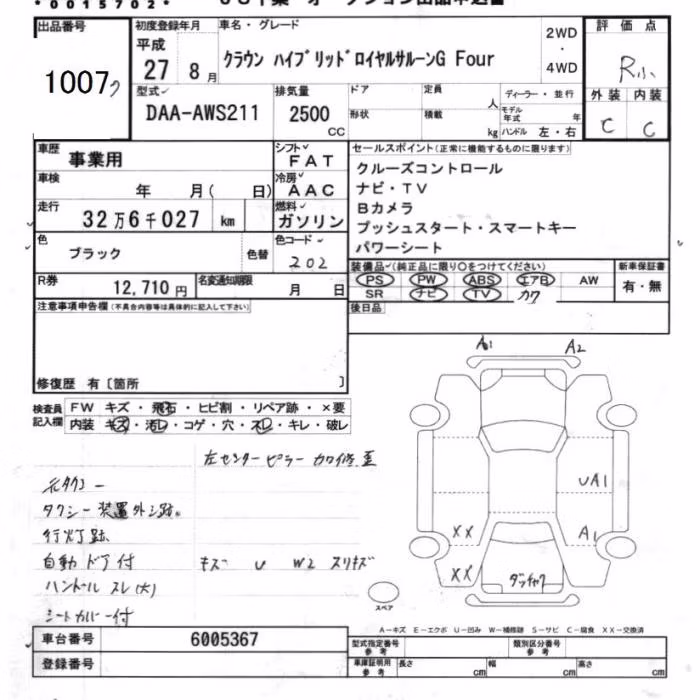 *0015702*
出品番号
1007
初度登録年月
平成
27 8月
車名・グレード
クラウン ハイブリッドロイヤルサルーンG Four
2WD
・
4WD
評価点
R小
外装 内装
C C
型式
DAA-AWS211
排気量
2500
CC
ドア
形状
定員
人
積載
kg
ディーラー・並行
モデル年式 年
ハンドル 左・右
車歴 事業用
シフト
FAT
車検 年 月( 日)
冷房
AAC
走行 32万6千027 km
燃料
ガソリン
色
ブラック
色替
色コード
202
R券 12,710円
名変通知期限 月 日
セールスポイント(正常に機能するものに限ります)
クルーズコントロール
ナビ・TV
Bカメラ
プッシュスタート・スマートキー
パワーシート
装備品(純正品に限り○をつけてください)
新車保証書
PS PW ABS エアB AW
SR ナビ TV カワ
有・無
後日品
注意事項申告欄(不具合内容等は具体的に記入して下さい)
修復歴 有〔箇所 〕
検査員記入欄
FW キズ・飛石・ヒビ割・リペア跡・×要
内装 キズ・汚レ・コゲ・穴・スレ・キレ・破レ
左センターピラー カワ修正
元タクシー
タクシー装置外シ跡。
行灯跡
自動ドア付
キズ U W2 スリキズ
ハンドル スレ(大)
シートカバー付
A1
A2
UA1
A1
XX
XX
ダッチャク
スペア
A−キズ E−エクボ U−凹み W−補修跡 S−サビ C−腐食 XX−交換済
車台番号 6005367
登録番号
型式指定番号
参考
類別区分番号
参考
車庫証明用
参考
長さ cm 幅 cm 高さ cm